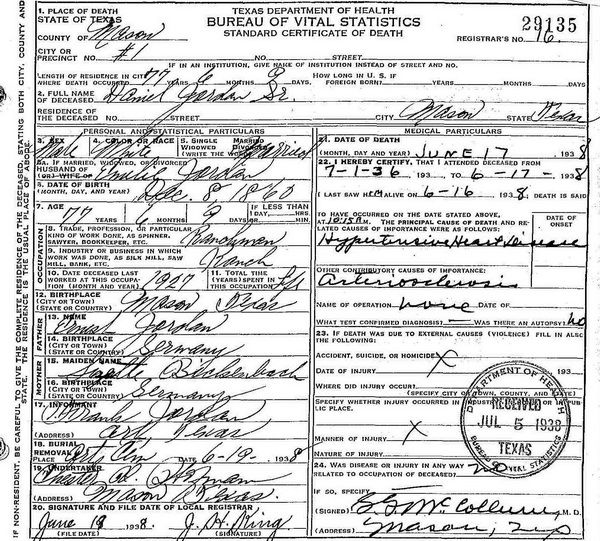 1. PLACE OF DEATH
STATE OF TEXAS
COUNTY OF Mason
CITY OR PRECINCT NO. #1
TEXAS DEPARTMENT OF HEALTH
BUREAU OF VITAL STATISTICS
STANDARD CERTIFICATE OF DEATH
29135
REGISTRAR'S NO. 16
IF IN AN INSTITUTION, GIVE NAME OF INSTITUTION INSTEAD OF STREET AND NO.
LENGTH OF RESIDENCE IN CITY WHERE DEATH OCCURRED 77 YEARS 6 MONTHS 9 DAYS. HOW LONG IN U. S. IF FOREIGN BORN? YEARS MONTHS DAYS
2. FULL NAME OF DECEASED Daniel Jordan Sr.
RESIDENCE OF THE DECEASED STREET AND NO. CITY Mason STATE Texas
PERSONAL AND STATISTICAL PARTICULARS
3. SEX Male 4. COLOR OR RACE White 5. SINGLE MARRIED WIDOWED DIVORCED (WRITE THE WORD) Married
5A. IF MARRIED, WIDOWED, OR DIVORCED
HUSBAND OF (OR) WIFE OF Emilie Jordan
6. DATE OF BIRTH (MONTH, DAY, AND YEAR) Dec. 8, 1860
7. AGE 77 YEARS 6 MONTHS 9 DAYS IF LESS THAN 1 DAY HRS. MIN.
OCCUPATION
8. TRADE, PROFESSION, OR PARTICULAR KIND OF WORK DONE, AS SPINNER, SAWYER, BOOKKEEPER, ETC. Ranchman
9. INDUSTRY OR BUSINESS IN WHICH WORK WAS DONE, AS SILK MILL, SAW MILL, BANK, ETC. Ranch
10. DATE DECEASED LAST WORKED AT THIS OCCUPATION (MONTH AND YEAR) 1927 11. TOTAL TIME (YEARS) SPENT IN THIS OCCUPATION Life
12. BIRTHPLACE (CITY OR TOWN) (STATE OR COUNTRY) Mason Texas
FATHER
13. NAME Ernst Jordan
14. BIRTHPLACE (CITY OR TOWN) (STATE OR COUNTRY) Germany
MOTHER
15. MAIDEN NAME
16. BIRTHPLACE (CITY OR TOWN) (STATE OR COUNTRY) Germany
17. INFORMANT Frank Jordan
(ADDRESS) Art Texas
18. BURIAL REMOVAL
PLACE Art DATE 6-19- 1938
19. UNDERTAKER Chester
(ADDRESS) Mason Texas
20. SIGNATURE AND FILE DATE OF LOCAL REGISTRAR
June 19 1938. J. H. King
(FILE DATE) (SIGNATURE)
MEDICAL PARTICULARS
21. DATE OF DEATH
(MONTH, DAY AND YEAR) JUNE 17 1938
22. I HEREBY CERTIFY, THAT I ATTENDED THE DECEASED FROM
7-1-36, 193 TO 6-17- 1938
I LAST SAW HIM ALIVE ON 6-16 1938, DEATH IS SAID
TO HAVE OCCURRED ON THE DATE STATED ABOVE, AT 10:15 A.M. THE PRINCIPAL CAUSE OF DEATH AND RELATED CAUSES OF IMPORTANCE WERE AS FOLLOWS:
DATE OF ONSET
Hypertensive Heart Disease
OTHER CONTRIBUTORY CAUSES OF IMPORTANCE:
Arteriosclerosis
NAME OF OPERATION none DATE OF
WHAT TEST CONFIRMED DIAGNOSIS - WAS THERE AN AUTOPSY NO
23. IF DEATH WAS DUE TO EXTERNAL CAUSES (VIOLENCE) FILL IN ALSO THE FOLLOWING:
ACCIDENT, SUICIDE, OR HOMICIDE X
DATE OF INJURY 193
WHERE DID INJURY OCCUR
(SPECIFY CITY OR TOWN, COUNTY, AND STATE)
SPECIFY WHETHER INJURY OCCURRED IN INDUSTRY, IN HOME, OR IN PUBLIC PLACE.
MANNER OF INJURY X
NATURE OF INJURY
24. WAS DISEASE OR INJURY IN ANY WAY RELATED TO OCCUPATION OF DECEASED? no
IF SO, SPECIFY
(SIGNED) McCollum M. D.
(ADDRESS) Mason, Tex
DEPARTMENT OF HEALTH
RECEIVED
JUL 5 1938
TEXAS
BUREAU VITAL STATISTICS
IF NON-RESIDENT, BE CAREFUL TO GIVE THE COMPLETE RESIDENCE OF THE DECEASED STATING BOTH CITY, COUNTY AND STATE. THE RESIDENCE IS THE USUAL PLACE OF ABODE.